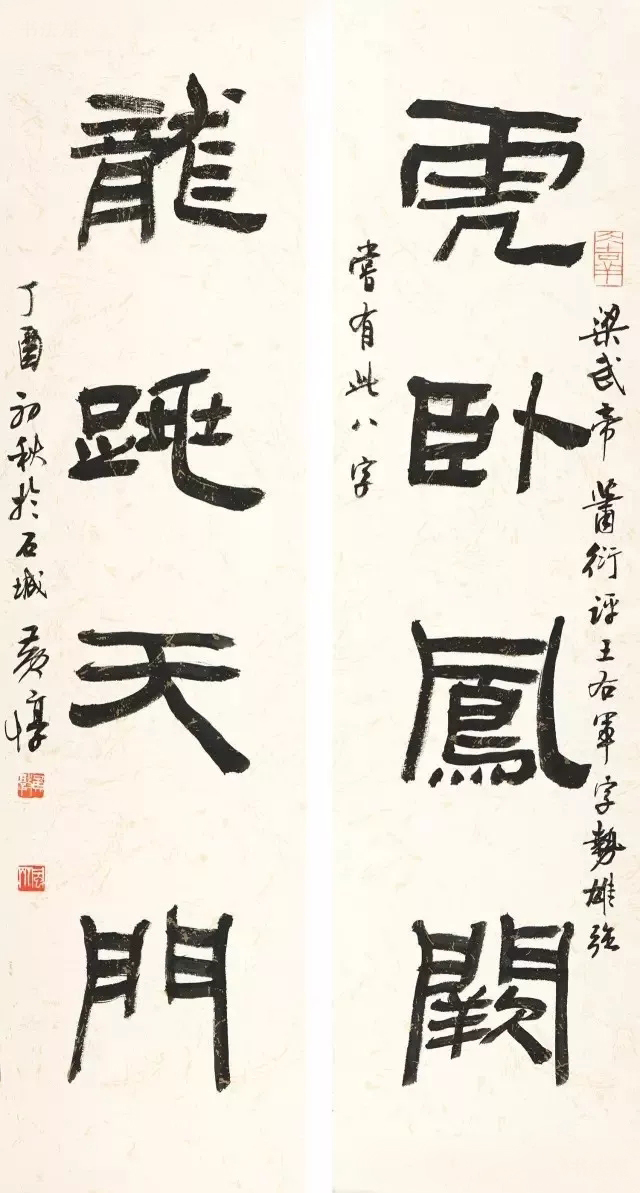 梁武帝蕭衍評王右軍字勢雄強
虎卧鳳闕
嘗有此八字
龍跳天門
丁酉初秋於石城黃惇